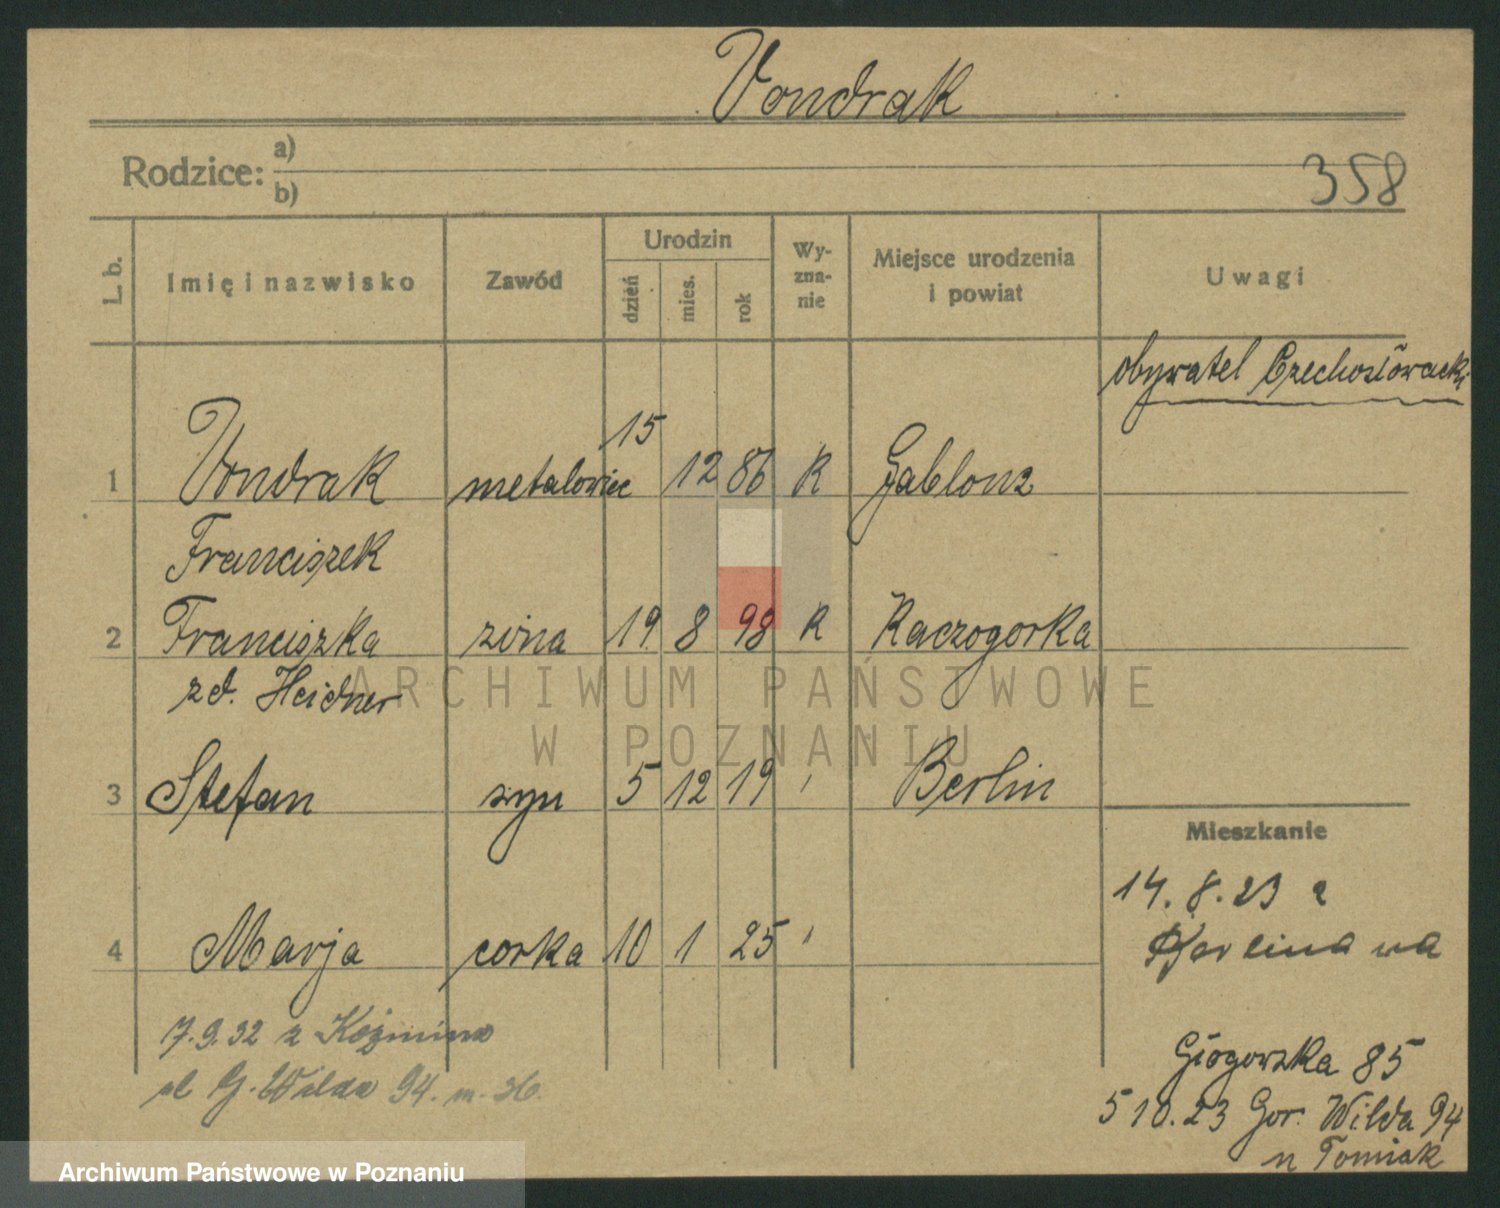 Vondrak
Rodzice: a)
b)
358
L. b.
Imię i nazwisko
Zawód
Urodzin
dzień
mies.
rok
Wy-
zna-
nie
Miejsce urodzenia
i powiat
Uwagi
obywatel Czechosłowacki
1 Vondrak metalowiec 15 12 86 R Gablonz
Franciszek
2 Franciszka żona 19. 8 98 R Raczogorka
zd. Heidner
3 Stefan syn 5 12 19 ' Berlin
Mieszkanie
14. 8. 23 z
4 Marja corka 10 1 25 '
7.9.32 z Koźmina
ul G. Wilda 94. m. 36.
Głogowska 85
5 10. 23 Gor. Wilda 94
n Tomiak
ARCHIWUM PAŃSTWOWE
W POZNANIU
Archiwum Państwowe w Poznaniu